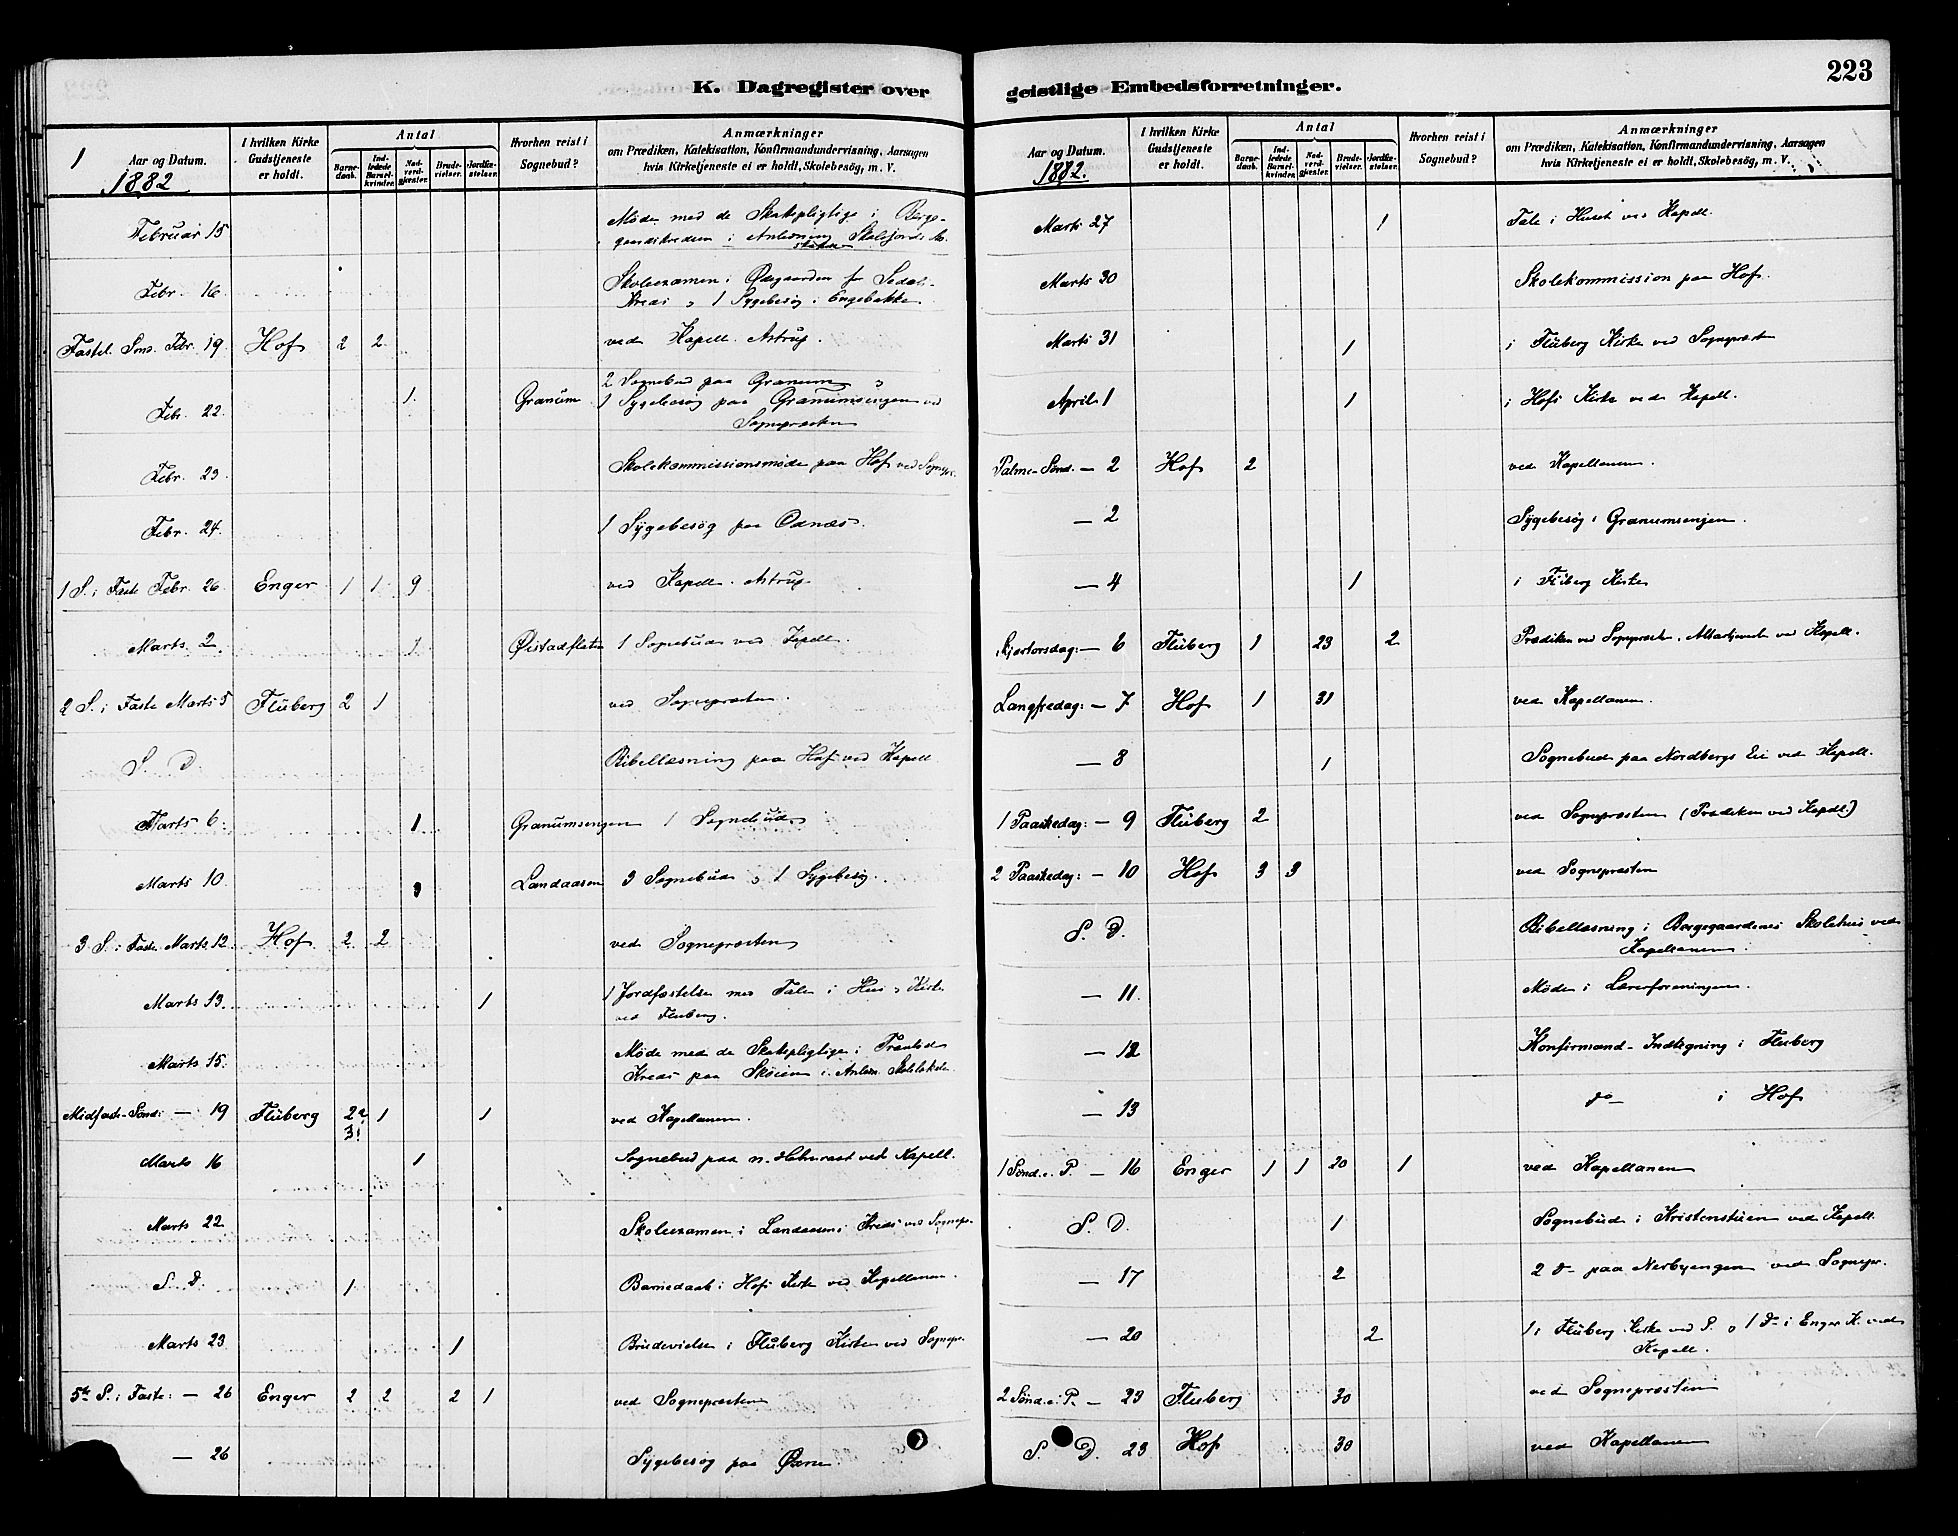 K. Dagregister over
geistlige Embedsforretninger.
223
1
Aar og Datum.
1882
I hvilken Kirke Gudstjeneste er holdt.
Antal
Barnedaab.
Indledede Barselkvinder.
Nadverdgjester.
Brudevielser.
Jordfæstelser.
Hvorhen reist i Sognebud?
Anmærkninger
om Prædiken, Katekisation, Konfirmandundervisning, Aarsagen
hvis Kirketjeneste ei er holdt, Skolebesög, m. V.
Februar 15 Møde med de Skattepligtige i
i Anledning
Febr. 16. Skoleexamen i Ødegaarden for
Kreds, 1 Sygebesøg i Engebakke
Fastel. Sønd. Febr. 19. Hof 2 2 ved Kapell. Astrup.
Febr. 22. 1 Granum 2 Sognebud paa Granum
1 Sygebesøg paa Granumsengen ved
Sognepræsten
Febr. 23. Skolekommissionsmøde paa Hof ved Sognepr.
Febr. 24. 1 Sygebesøg paa Odnæs.
1 S. i Faste Febr. 26 Enger 1 1 9 ved Kapell. Astrup
Marts 2. 1 Øistadflaten 1 Sognebud ved Kapell.
2 S. i Faste Marts 5 Fluberg 2 1 ved Sognepræsten.
S. D. Bibellæsning paa Hof ved Kapell
Marts 6. 1 Granumsengen 1 Sognebud
Marts 10. 3 Landaasen 3 Sognebud, 1 Sygebesøg.
3 S. i Faste Marts 12. Hof 2 2 ved Sognepræsten
Marts 13. 1 1 Jordfæstelse med Tale i Hus, Kirke
ved Fluberg.
Marts 15. Møde med de Skattepligtige i
Kreds paa Skøien i Anledn.
Midfaste-Sønd: — 19 Fluberg 2 1 1 ved Kapellanen.
3
Marts 16 1 Sognebud paa n. ved Kapell.
Marts 22 Skoleexamen i Landaasens Kreds ved Sognepr.
S. D. 1 Barnedaab i Hofs Kirke ved Kapellanen.
Marts 23 1 Brudevielse i Fluberg Kirke ved Sognepr.
5te S. i Faste: — 26 Enger 2 2 2 1 ved Sognepræsten
— 26 Sygebesøg paa
Aar og Datum.
1882.
I hvilken Kirke Gudstjeneste er holdt.
Antal
Barnedaab.
Indledede Barselkvinder.
Nadverdgjester.
Brudevielser.
Jordfæstelser.
Hvorhen reist i Sognebud?
Anmærkninger
om Prædiken, Katekisation, Konfirmandundervisning, Aarsagen
hvis Kirketjeneste ei er holdt, Skolebesög, m. V.
Marts 27 1 Tale i Huset ved Kapell.
Marts 30 Skolekommission paa Hof.
Marts 31 1 i Fluberg Kirke ved Sognepræsten
April 1 1 i Hofs Kirke ved Kapell.
Palme-Sønd. — 2 Hof 2 ved Kapellanen.
— 2 Sygebesøg i Granumsengen.
— 4 1 i Fluberg Kirke
Skjærtorsdag: — 6 Fluberg 1 23 2 Prædiken ved Sognepræsten, Altertjeneste ved Kapell.
Langfredag: — 7 Hof 1 31 ved Kapellanen.
— 8 1 Sognebud paa Nordbergs Eie ved Kapell.
1 Paaskedag: — 9 Fluberg 2 ved Sognepræsten (Prædiken ved Kapell.)
2 Paaskedag: — 10 Hof 3 3 ved Sognepræsten
S. D. Bibellæsning i Skolehus ved
Kapellanen.
— 11. Møde i Lærerforeningen.
— 12 Konfirmand-Indtegning i Fluberg
— 13 do i Hof
1 Sønd. e. P. — 16 Enger 1 1 20 1 ved Kapellanen
S. D. 1 Sognebud i Kristenstuen ved Kapell.
— 17 2 2 do paa Nerbyengen ved Sognepr.
— 20 2 1 i Fluberg Kirke ved S. o 1 do i Enger K. ved
Kapell.
2 Sønd. e. P. — 23 Fluberg 30 ved Sognepræsten
S. D. 23 Hof 30 ved Kapellanen